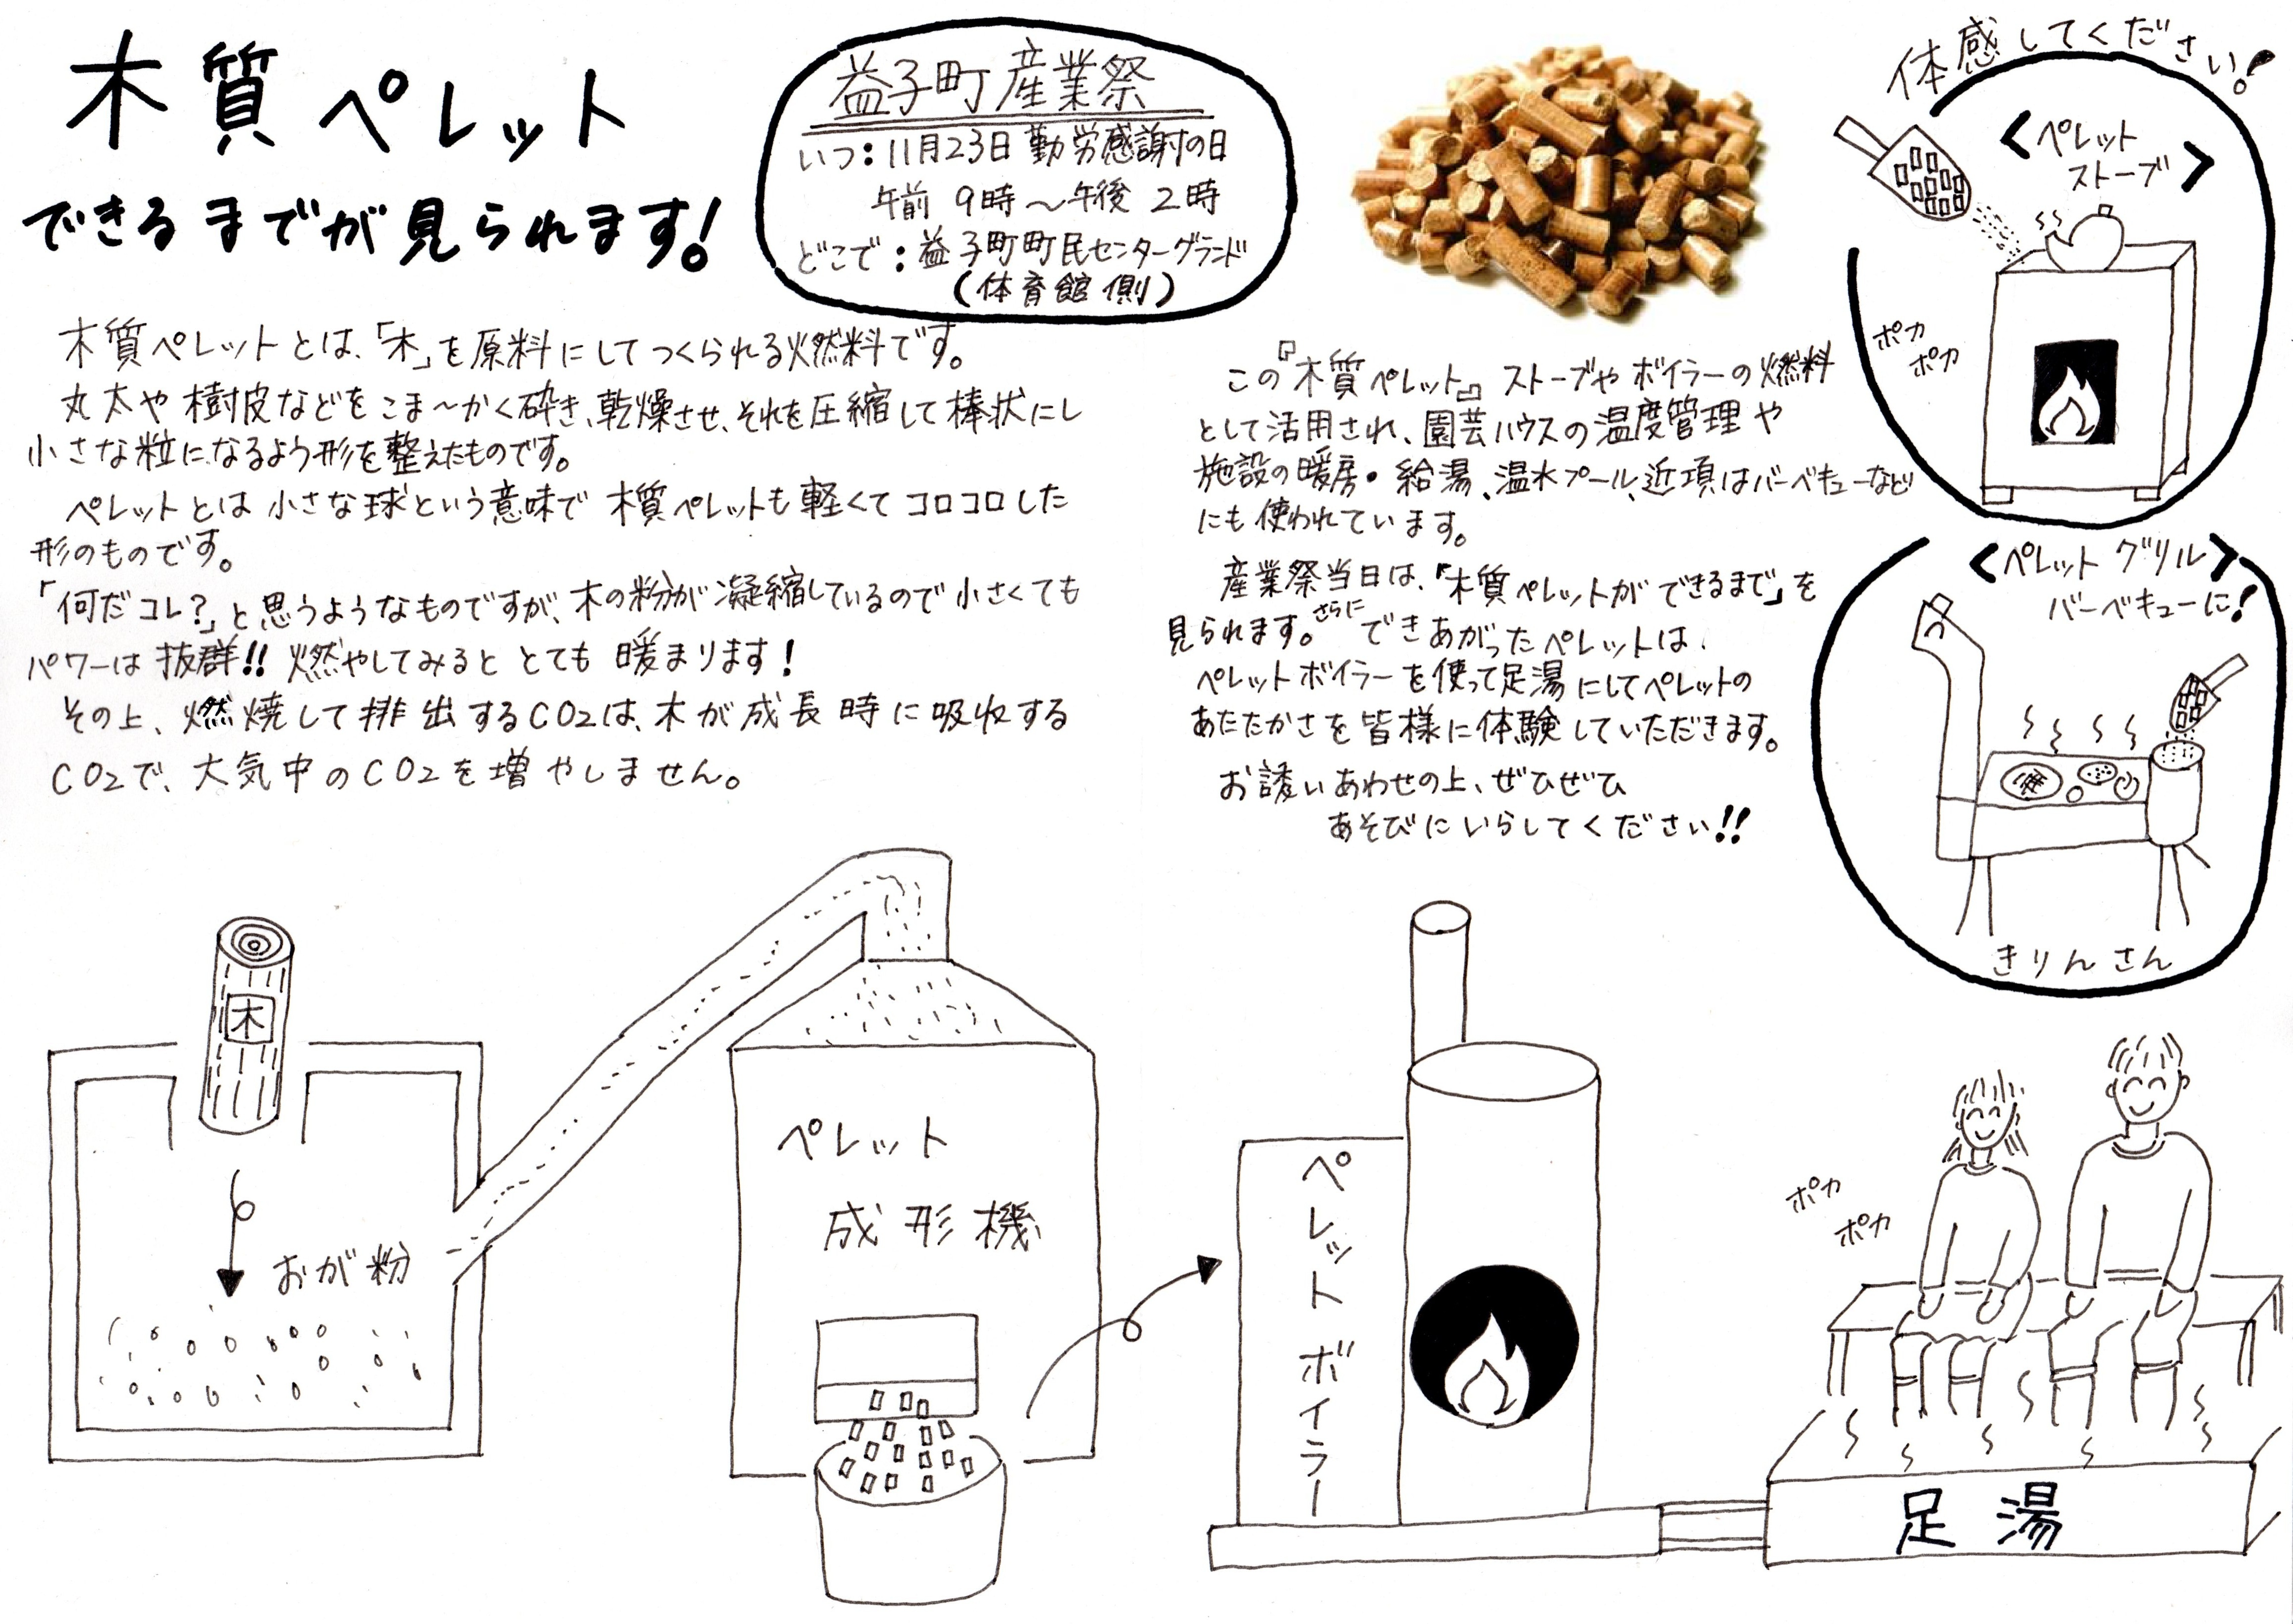 木質ペレット
できるまでが見られます!
益子町産業祭
いつ:11月23日 勤労感謝の日
午前 9時〜午後 2時
どこで:益子町町民センターグランド
(体育館側)
木質ペレットとは、「木」を原料にしてつくられる燃料です。
丸太や樹皮などをこま〜かく砕き、乾燥させ、それを圧縮して棒状にし
小さな粒になるよう形を整えたものです。
ペレットとは小さな球という意味で 木質ペレットも軽くてコロコロした
形のものです。
「何だコレ?」と思うようなものですが、木の粉が凝縮しているので小さくても
パワーは抜群!! 燃やしてみると とても 暖まります!
その上、燃焼して排出するCO2は、木が成長時に吸収する
CO2で、大気中のCO2を増やしません。
この『木質ペレット』ストーブやボイラーの燃料
として活用され、園芸ハウスの温度管理や
施設の暖房・給湯、温水プール、近項はバーベキューなど
にも使われています。
産業祭当日は、「木質ペレットができるまで」を
見られます。さらにできあがったペレットは、
ペレットボイラーを使って足湯にしてペレットの
あたたかさを皆様に体験していただきます。
お誘いあわせの上、ぜひぜひ
あそびにいらしてください!!
体感してください!
<ペレット
ストーブ>
ポカ
ポカ
<ペレットグリル>
バーベキューに!
きりんさん
木
おが粉
ペレット
成形機
ペレットボイラー
ポカ
ポカ
足湯